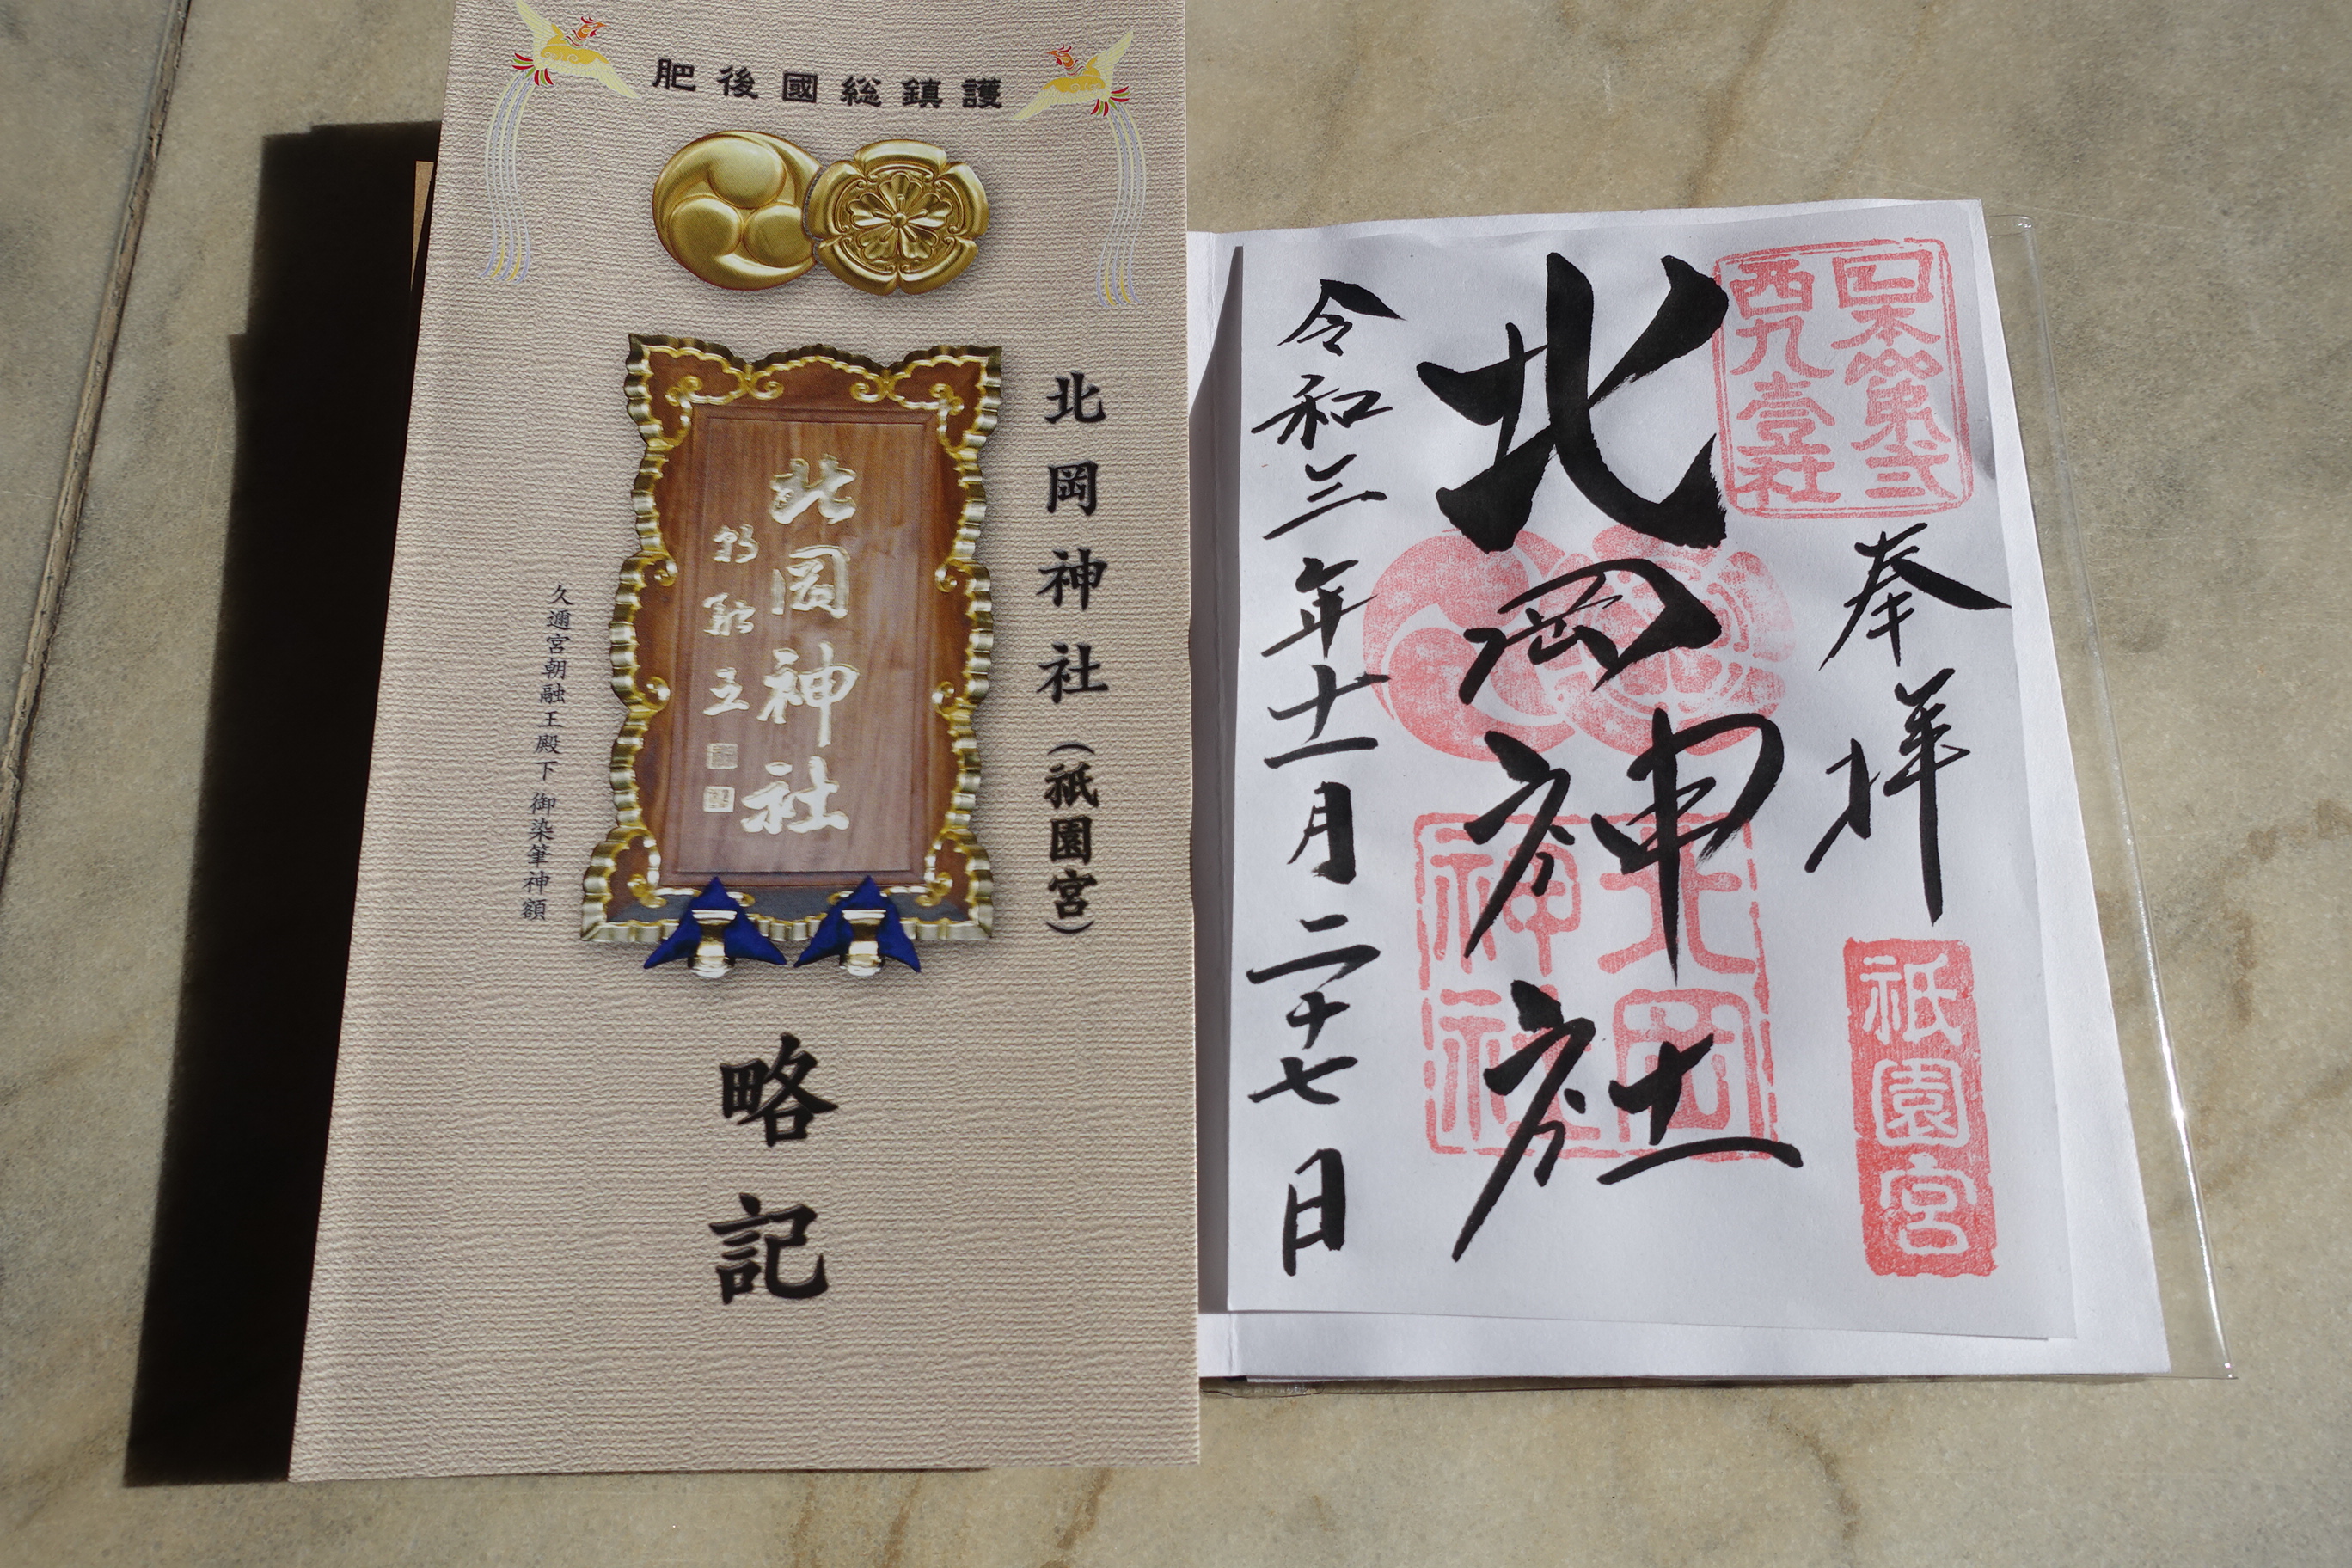 肥後國総鎮護
北岡神社（祇園宮）
北岡神社
朝融王
久邇宮朝融王殿下 御染筆神額
略記
日本第弐
西九壹社
奉拝
祇園宮
北岡神社
北岡
神社
令和三年十一月二十七日